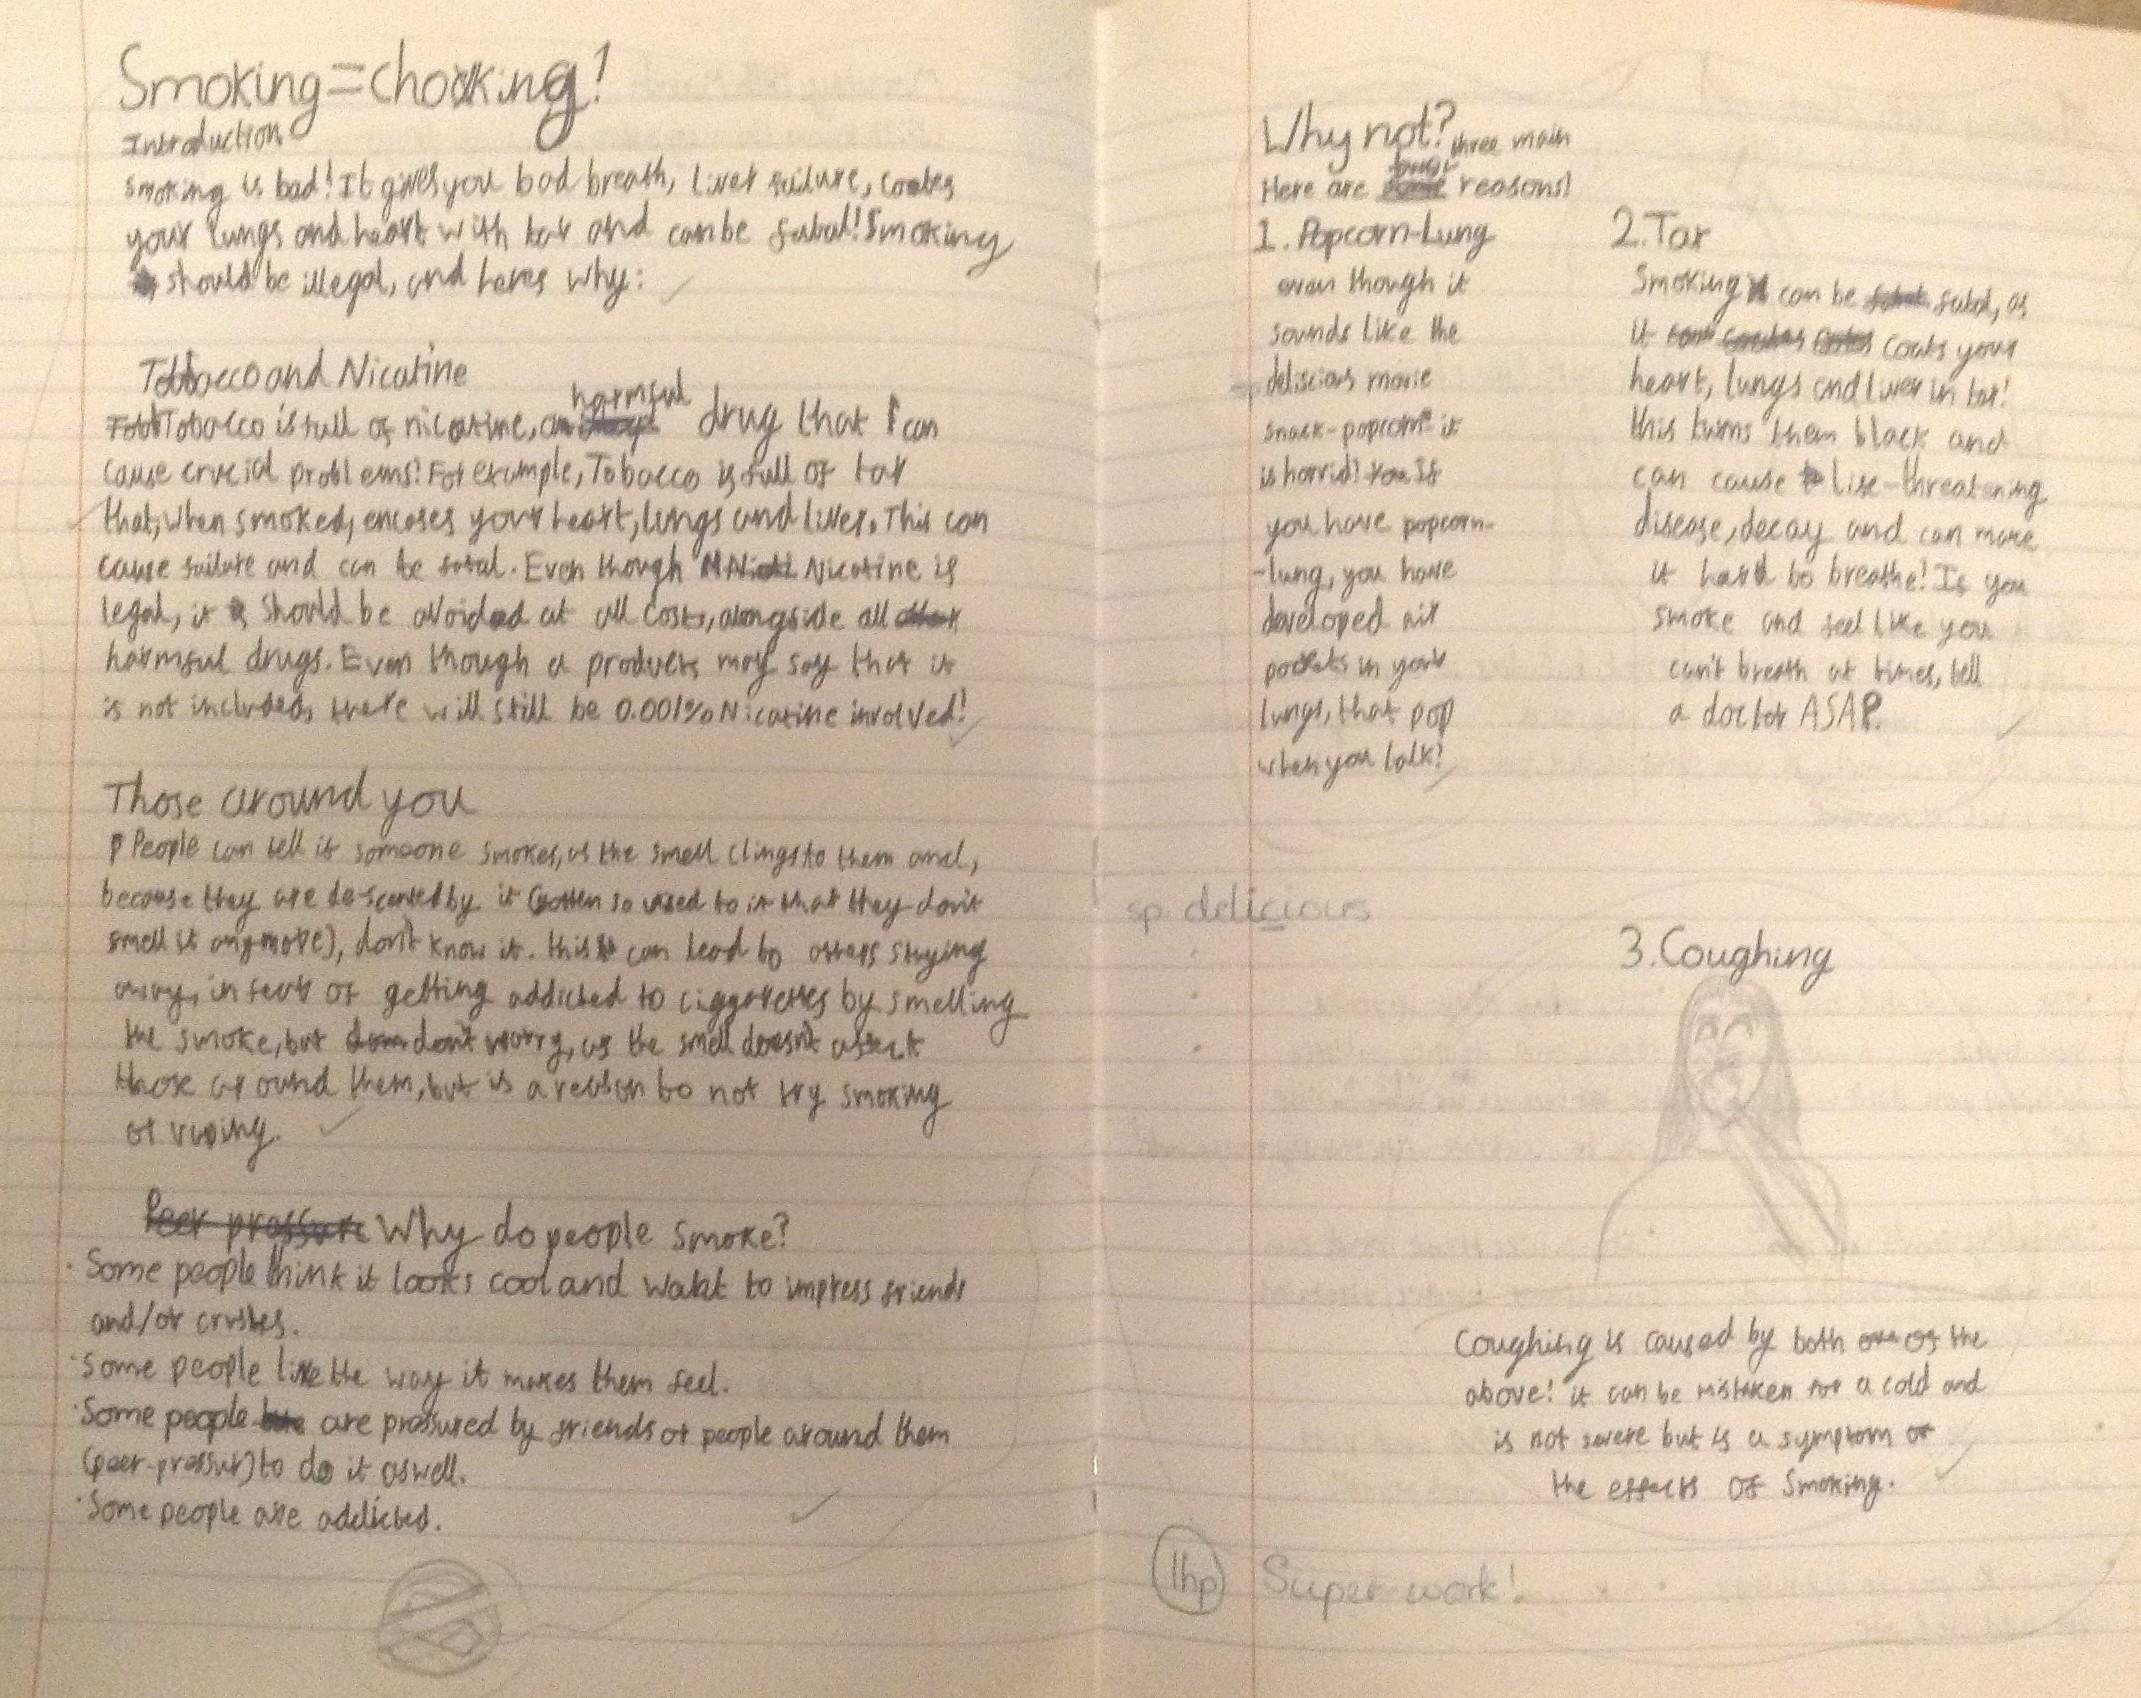 Smoking=choking!
Introduction
smoking is bad! It gives you bad breath, liver failure, coates
your lungs and heart with tar and can be fatal! Smoking
should be illegal, and heres why:
Tobbacco and Nicatine
Tobacco is full of nicatine, an harmful drug that can
cause crucial problems! For example, Tobacco is full of tar
that, when smoked, encases your heart, lungs and liver. This can
cause failure and can be fatal. Even though Nicatine is
legal, it should be avoided at all costs, alongside all
harmful drugs. Even though a products may say that it
is not included, there will still be 0.001% Nicatine involved!
Those around you
People can tell if someone smokes, as the smell clings to them and,
because they are de-scented by it (gotten so used to it that they don't
smell it anymore), don't know it. this can lead to others staying
away, in fear of getting addicted to ciggarettes by smelling
the smoke, but don't worry, as the smell doesn't affect
those around them, but is a reason to not try smoking
or vaping.
Peer pressure Why do people smoke?
· Some people think it looks cool and want to impress friends
and/or crushes.
· Some people like the way it makes them feel.
· Some people are pressured by friends or people around them
(peer-pressur) to do it aswell.
· Some people are addicted.
Why not?
three main
Here are reasons!
1. Popcorn-Lung
even though it
sounds like the
deliscious movie
snack-popcorn it
is horrid! If
you have popcorn-
-lung, you have
developed air
pockets in your
lungs, that pop
when you talk!
2. Tar
Smoking can be fatal, as
it coats your
heart, lungs and liver in tar!
this turns them black and
can cause life-threatening
disease, decay and can make
it hard to breathe! If you
smoke and feel like you
can't breath at times, tell
a doctor ASAP.
sp. delicious
3. Coughing
Coughing is caused by both of the
above! it can be mistaken for a cold and
is not severe but is a symptom of
the effects of smoking.
1hp Super work!